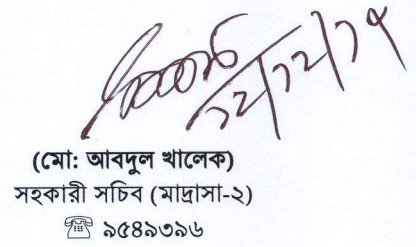 ১২/১২/১৭
(মো: আবদুল খালেক)
সহকারী সচিব (মাদ্রাসা-২)
☏ ৯৫৪৯৩৯৬